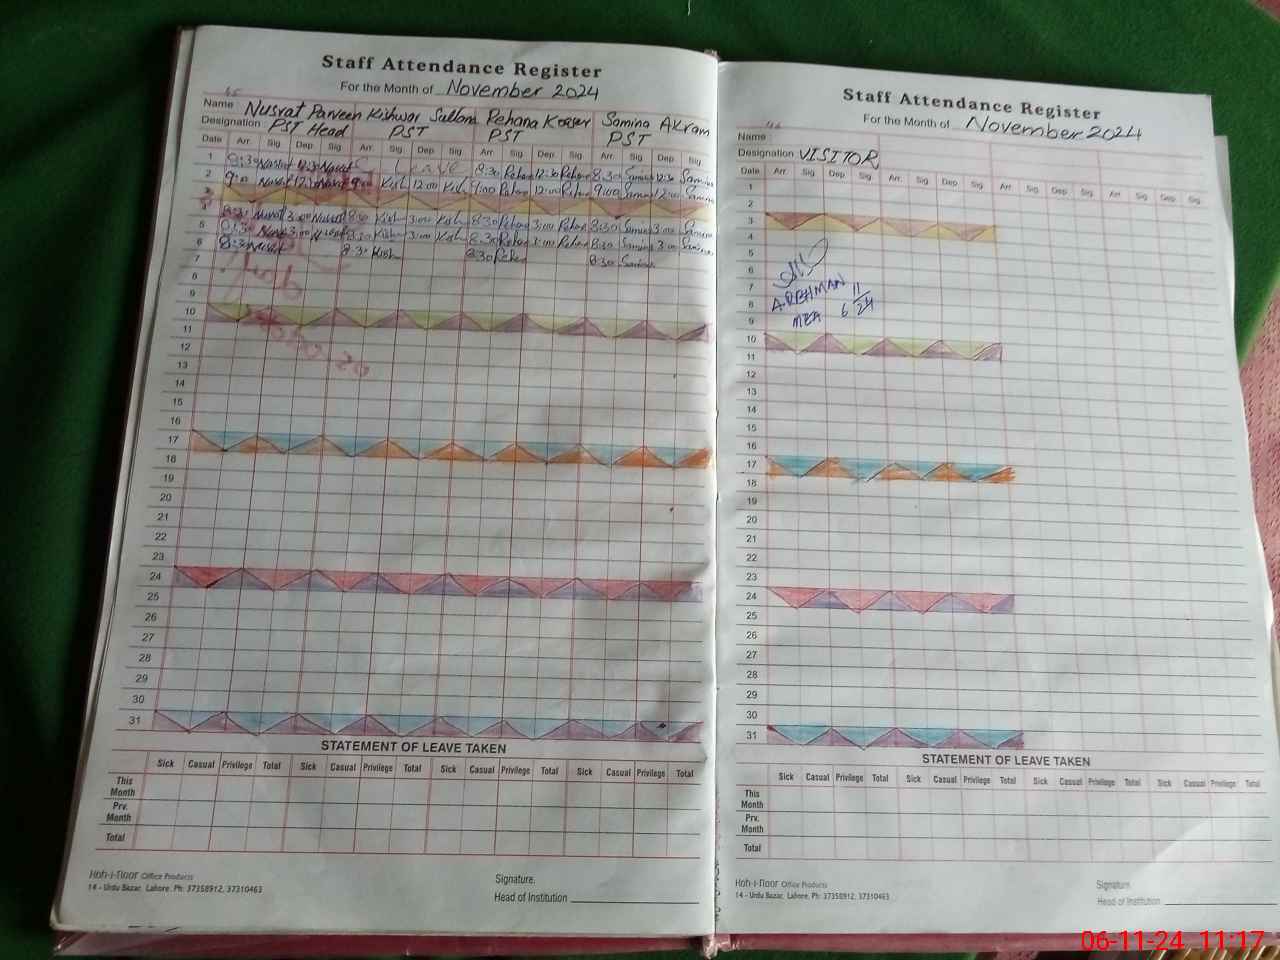 Staff Attendance Register
For the Month of November 2024
Name Nusrat Parveen Kishwar Sultana Rehana Kosser Samina Akram
Designation PST Head PST PST PST
Date Arr. Sig. Dep. Sig. Arr. Sig. Dep. Sig. Arr. Sig. Dep. Sig. Arr. Sig. Dep. Sig.
1 8:30 Nusrat 12:30 Nusrat Leave 8:30 Rehan 12:30 Rehan 8:30 Samina 12:30 Samina
2 9:00 Nusrat 12:00 Nusrat 9:00 Kish 12:00 Kish 9:00 Rehan 12:00 Rehan 9:00 Samina 12:00 Samina
3
4 8:30 Nusrat 3:00 Nusrat 8:30 Kish 3:00 Kish 8:30 Rehan 3:00 Rehan 8:30 Samina 3:00 Samina
5 8:30 Nusrat 3:00 Nusrat 8:30 Kish 3:00 Kish 8:30 Rehan 3:00 Rehan 8:30 Samina 3:00 Samina
6 8:30 Nusrat 8:30 Kish 8:30 Rehan 8:30 Samina
7
8
9
10
11
12
13
14
15
16
17
18
19
20
21
22
23
24
25
26
27
28
29
30
31
STATEMENT OF LEAVE TAKEN
Sick Casual Privilege Total Sick Casual Privilege Total Sick Casual Privilege Total Sick Casual Privilege Total
This Month
Prv. Month
Total
Koh-i-Noor Office Products
14 - Urdu Bazar, Lahore. Ph: 37358912, 37310463
Signature.
Head of Institution
46
Staff Attendance Register
For the Month of November 2024
Name
Designation VISITOR
Date Arr. Sig. Dep. Sig. Arr. Sig. Dep. Sig. Arr. Sig. Dep. Sig. Arr. Sig. Dep. Sig.
1
2
3
4
5
6
7
8 A.REHMAN 11
9 MEA 6 24
10
11
12
13
14
15
16
17
18
19
20
21
22
23
24
25
26
27
28
29
30
31
STATEMENT OF LEAVE TAKEN
Sick Casual Privilege Total Sick Casual Privilege Total Sick Casual Privilege Total Sick Casual Privilege Total
This Month
Prv. Month
Total
Koh-i-Noor Office Products
14 - Urdu Bazar, Lahore. Ph: 37358912, 37310463
Signature.
Head of Institution
06-11-24 11:17